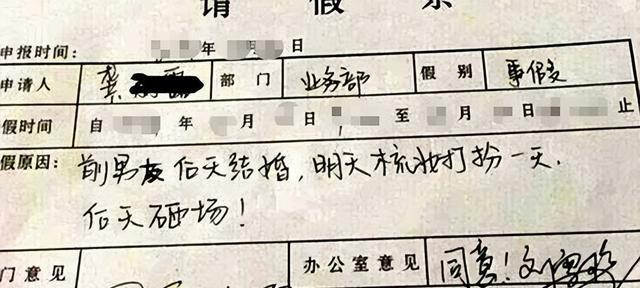 请假条
申报时间： 年 日
申请人 龚 部门 业务部 假别 事假
假时间 自 年 月 日 至 月 日 止
假原因： 前男友后天结婚，明天梳妆打扮一天.
后天砸场！
门意见 办公室意见 同意！